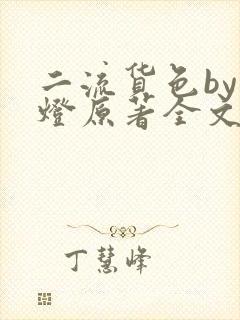 二流货色by
燈原著全文
丁慧峰